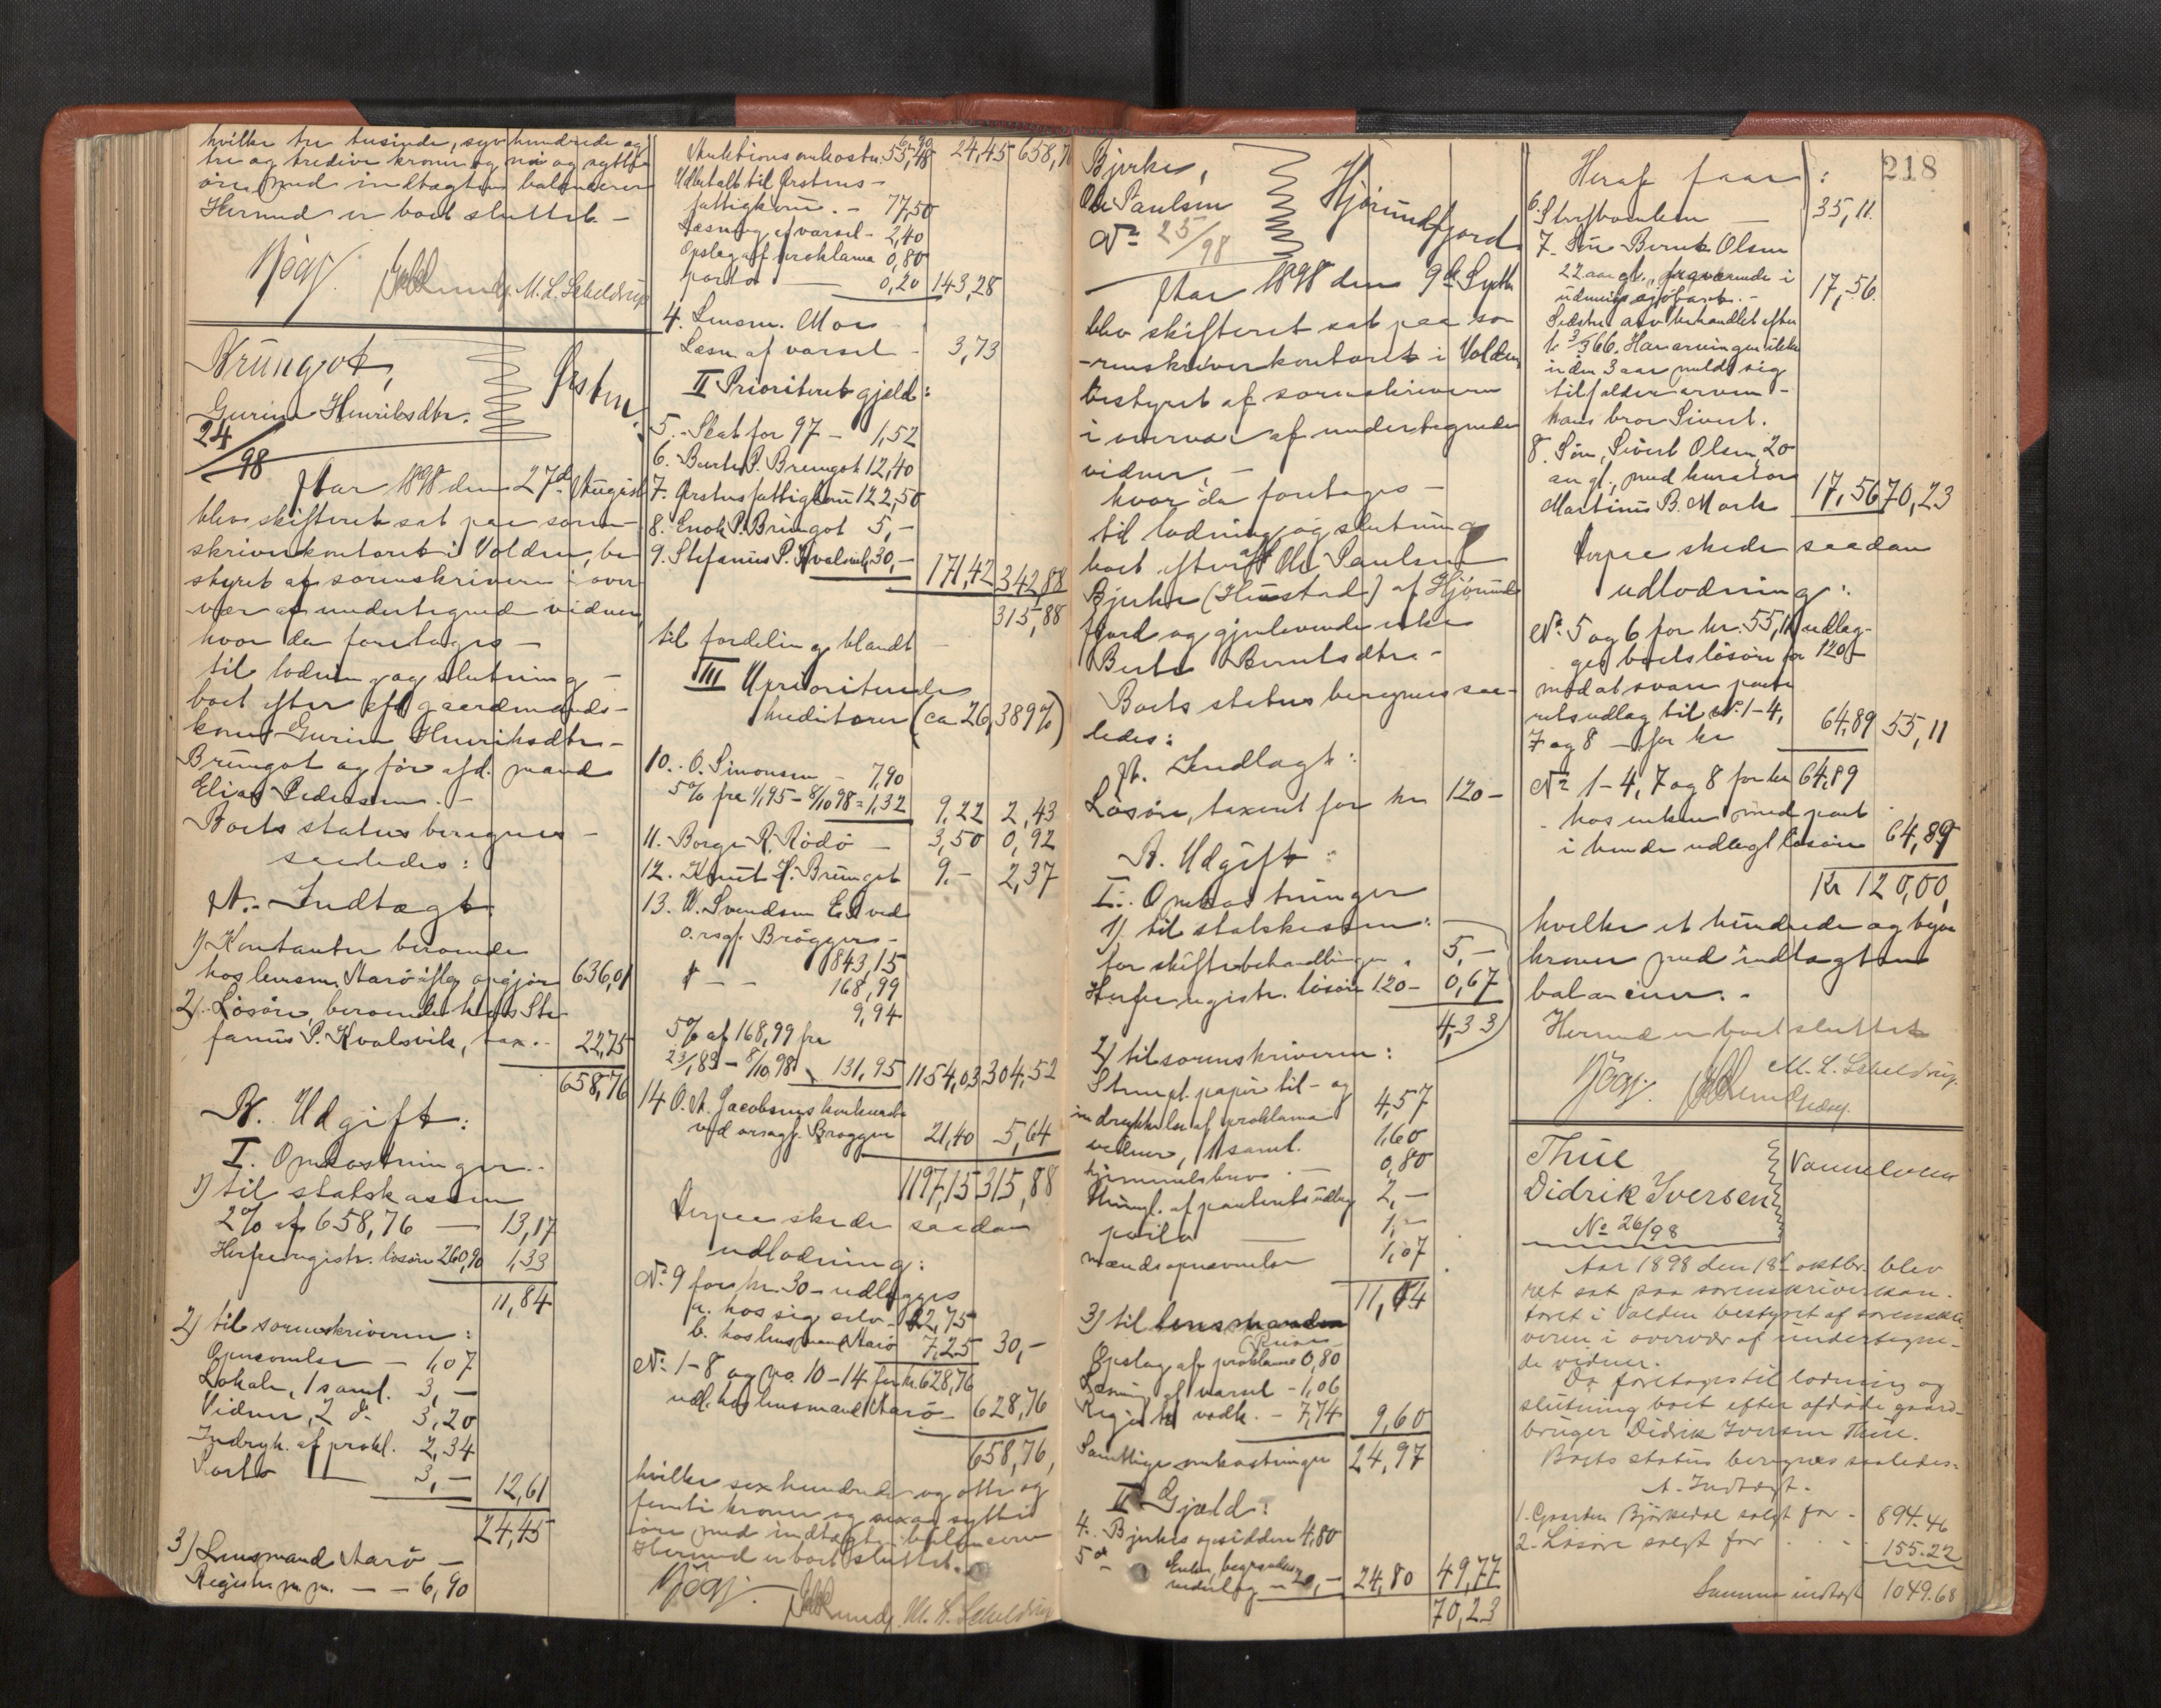 hvilke tre tusinde, syv hundrede og
tre og tredive kroner og ni og sytti
øre med indtægten balancerer
Hermed er boet sluttet. –
M. L. Scheldrup
Brungot,
Gurine Henriksdtr.
Ørsten.
24/98
Aar 1898 den 27de August
blev skifteret sat paa soren-
skriverkontoret i Volden, be
styret af sorenskriveren i over
vær af undertegned vidner,
hvor da foretages –
til lodning og slutning –
boet efter afd. gaardmands-
kone Gurine Henriksdtr. –
Brungot og før afd. mand
Elias Pedersen. –
Boets status beregnes –
saaledes:
A. Indtægt
1) Kontanter beroende
hos lensm. Aarø iflg. opgjør 636,01
2) Løsøre, beroende hos Ste-
fanus P. Kvalsvik, tax. – 22,75
658,76
B. Udgift:
I. Omkostninger.
1) til statskassen
2% af 658,76 — 13,17
Herfra registr. løsøre 260,90 1,33
11,84
2) til sorenskriveren:
Opnævnelse – 1,07
Lokale, 1 saml. 3,–
Vidner, 2 d. 3,20
Indryk. af prokl. 2,34
Porto — 3,– 12,61
24,45
3) Lensmand Aarø –
Registr. m. m. — – 6,90
6,90
Auktionsomkostn. 55,48 24,45 658,76
Udbetalt til Ørstens –
fattigkom. – 77,50
Læsning af varsel – 2,40
Opslag af proklama 0,80
porto — 0,20 143,28
4. Lensm. Moe
Læsn. af varsel – 3,73
II Prioriteret gjeld:
5. Skat for 97 – 1,52
6. Berte P. Brungot 12,40
7. Ørstens fattigkom 122,50
8. Enok P. Brungot 5,–
9. Stefanus P. Kvalsvik 30,– 171,42 342,88
315,88
til fordeling blandt –
III Uprioriterede
kreditorer (ca 26,389%)
10. O. Simonsen – 7,90
5% fra 1/1 95 – 8/10 98 = 1,32 9,22 2,43
11. Borge R. Rödö – 3,50 0,92
12. Knut H. Brungot 9.– 2,37
13. W. Svendsen Eft ved
o.rsagf. Brøgger –
843,15
168,99
9,94
5% af 168,99 fra
23/1 83 – 8/10 98 131,95 1154,03 304,52
14 O. A. Jacobsens konkursbo
ved orsagf. Brøgger 21,40 5,64
1197,15 315,88
Derpaa skede saadan
udlodning:
No 9 for kr. 30 – udlægges
a. hos sig selv – 22,75
b. hos lensmand Aarø 7,25 30,–
No 1–8 og no. 10–14 for kr. 628,76
udl. hos lensmand Aarø – 628,76
658,76,
hvilke sex hundrede og otte og
femti kroner og sex og sytti
øre med indtægten balancerer
Hermed er boet sluttet. –
M. L. Scheldrup
218
Bjerke,
Ole Paulsen
No 25/98
Hjørundfjord
Aar 1898 den 9de Septbr
blev skifteret sat paa so-
-renskriverkontoret i Volden,
bestyret af sorenskriveren
i overvær af undertegnede
vidner, –
hvor da foretages –
til lodning og slutning
boet efter afd Ole Paulsen
Bjerke (Hustad) af Hjørund-
fjord og gjenlevende enke
Berte Berntsdtr. –
Boets status beregnes saa-
ledes:
A. Indtægt:
Løsøre, taxeret for kr 120 –
B. Udgift:
I. Omkostninger
1) til statskassen:
for skiftebehandlingen 5,–
Herfra registr. løsøre 120 – 0,67
4,33
2) til sorenskriveren:
Stempl. papir til – og
indrykkelse af proklama 4,57
vidner, 1 saml. 1,60
hjemmelsbrev. – 0,80
thingl. af panterets udlæg 2,–
porto — 1,–
mændsopnævnelse 1,07
11,04
3) til lensmanden
Opslag af proklama 0,80
Læsning af varsel – 1,06
Registr. vedk. – 7,74 9,60
Samtlige omkostninger 24,97
II Gjæld:
4. Bjerkes opsiddere 4,80
5 Enken, begravelses
vederlag – 20,– 24,80 49,77
70,23
Heraf faar:
6. Skifteenken — 35,11
7. Søn Bernt Olsen
22 aar gl., fraværende i
17,56
Sidstes arv behandlet efter
inden 3 aar melde sig
tilfalder arven –
hans bror Sivert.
8. Søn, Sivert Olsen, 20
aar gl., med kurator
Martinus B. Mork 17,56 70,23
Derpaa skede saadan
udlodning:
No. 5 og 6 for kr. 55,11 udlæg-
ges boets løsøre for 120 –
mod at svare pante
retsudlæg til No. 1–4,
7 og 8 – for kr 64,89 55,11
No 1–4, 7 og 8 for kr 64,89
hos enken med pant
i hende udlagt løsøre 64,89
Kr 120,00,
hvilke et hundrede og tyve
kroner med indtægten
balancerer. –
Hermed er boet sluttet
M. L. Scheldrup.
Thue
Didrik Iversen
No 26/98
Vannelven
Aar 1898 den 18de oktbr. blev
ret sat paa sorenskriverkon-
toret i Volden bestyret af sorenskri-
veren i overvær af undertegne-
de vidner.
Da foretages til lodning og
slutning boet efter afdøde gaard-
bruger Didrik Iversen Thue.
Boets status beregnes saaledes:
A. Indtægt.
1. Gaarden Bjørkedal solgt for – 894.46
2. Løsøre solgt for . . . . 155.22
Summa indtægt 1049.68